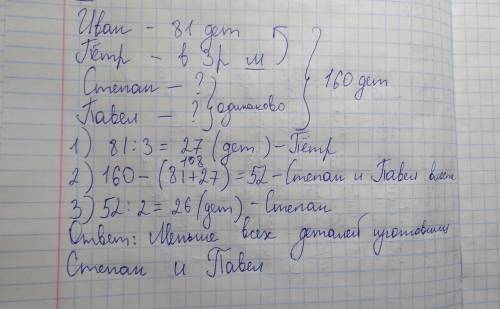 Иван - 81 дет
Пётр - в 3 р м
Степан - ?
Павел - ? одинаково
160 дет
1) 81 : 3 = 27 (дет) - Пётр
108
2) 160 - (81 + 27) = 52 - Степан и Павел вместе
3) 52 : 2 = 26 (дет) - Степан
Ответ: Меньше всех деталей изготовили
Степан и Павел